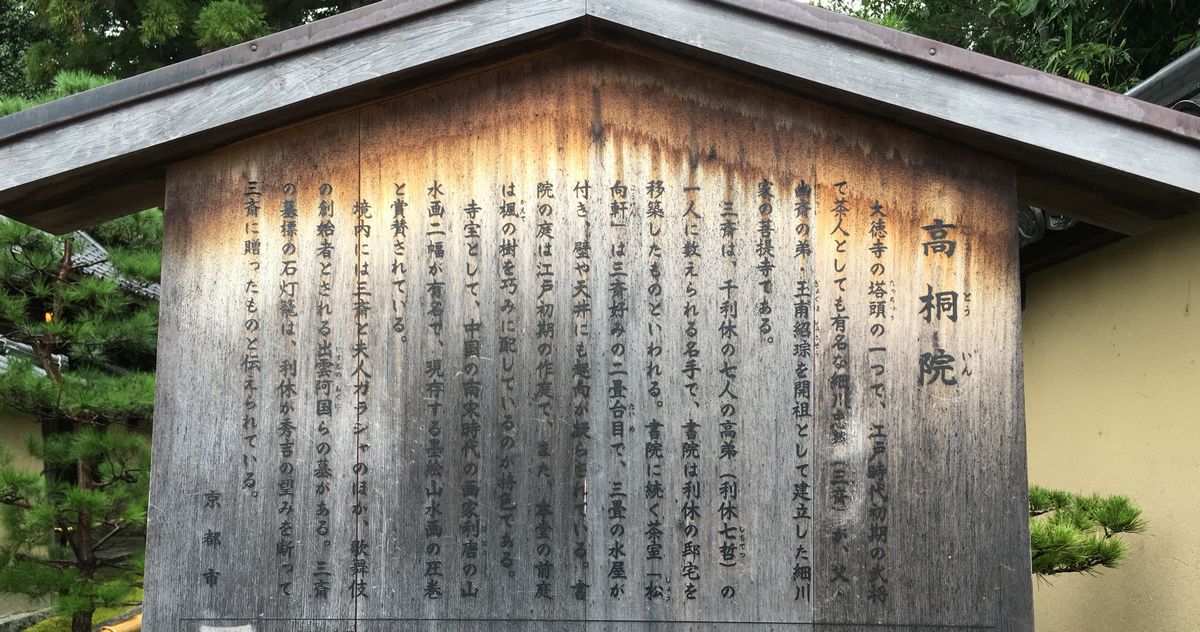 高桐院
大徳寺の塔頭の一つで、江戸時代初期の武将
で茶人としても有名な細川忠興（三斎）が、父・
幽斎の弟・玉甫紹琮を開祖として建立した細川
家の菩提寺である。
三斎は、千利休の七人の高弟（利休七哲）の
一人に数えられる名手で、書院は利休の邸宅を
移築したものといわれる。書院に続く茶室「松
向軒」は三斎好みの二畳台目で、三畳の水屋が
付き、壁や天井にも趣向が凝らされている。書
院の庭は江戸初期の作庭で、また、本堂の前庭
は楓の樹を巧みに配しているのが特色である。
寺宝として、中国の南宋時代の画家李唐の山
水画二幅が有名で、現存する墨絵山水画の圧巻
と賞賛されている。
境内には三斎と夫人ガラシャのほか、歌舞伎
の創始者とされる出雲阿国らの墓がある。三斎
の墓標の石灯籠は、利休が秀吉の望みを断って
三斎に贈ったものと伝えられている。
京都市